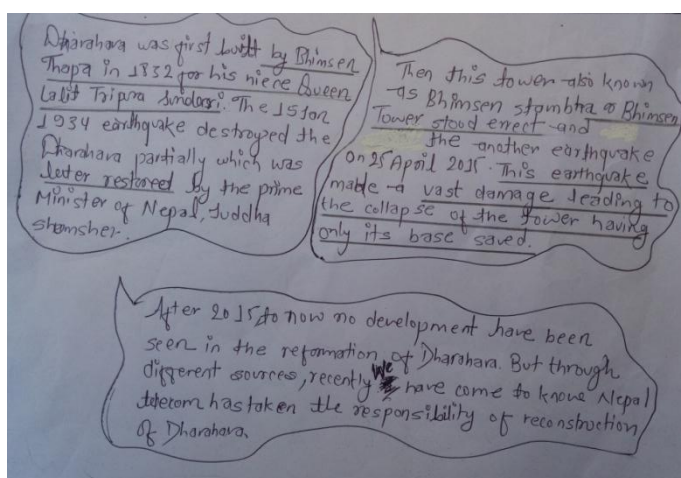 Dharahara was first built by Bhimsen
Thapa in 1832 for his niece Queen
Lalit Tripura Sundari. The 15 Jan
1934 earthquake destroyed the
Dharahara partially which was
later restored by the prime
Minister of Nepal, Juddha
shamsher.
Then this tower also known
as Bhimsen stambha or Bhimsen
Tower stood errect and
the another earthquake
on 25 April 2015. This earthquake
made a vast damage leading to
the collapse of the tower having
only its base saved.
After 2015 to now no development have been
seen in the reformation of Dharahara. But through
different sources, recently we have come to know Nepal
telecom has taken the responsibility of reconstruction
of Dharahara.